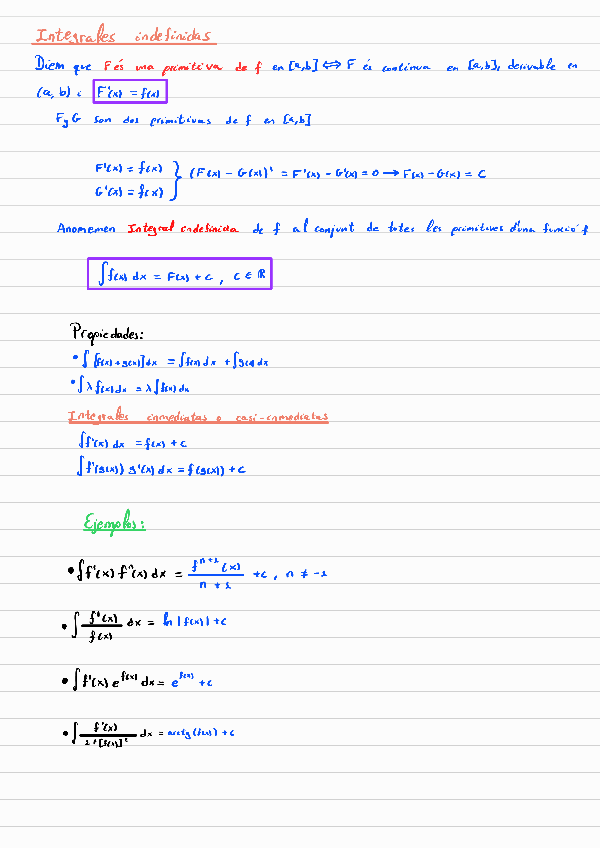 Integrales indefinidas
Diem que F és una primitiva de f en [a,b] ⟺ F és contínua en [a,b], derivable en
(a, b) i F'(x) = f(x)
F y G son dos primitivas de f en [a,b]
F'(x) = f(x)
G'(x) = f(x) } (F(x) - G(x))' = F'(x) - G'(x) = 0 → F(x) - G(x) = C
Anomemen Integral indefinida de f al conjunt de totes les primitives d'una funció f
∫f(x) dx = F(x) + c , c ∈ ℝ
Propiedades:
• ∫ [f(x)+g(x)]dx = ∫f(x) dx + ∫g(x) dx
• ∫λ f(x) dx = λ ∫ f(x) dx
Integrales inmediatas o casi-inmediatas
∫f'(x) dx = f(x) + c
∫f'(g(x)) g'(x) dx = f(g(x)) + c
Ejemplos:
• ∫f'(x) fⁿ(x) dx = fⁿ⁺¹(x) / n + 1 + c , n ≠ -1
• ∫ f'(x) / f(x) dx = ln |f(x)| + c
• ∫f'(x) e^f(x) dx = e^f(x) + c
• ∫ f'(x) / 1+[f(x)]² dx = arctg (f(x)) + c